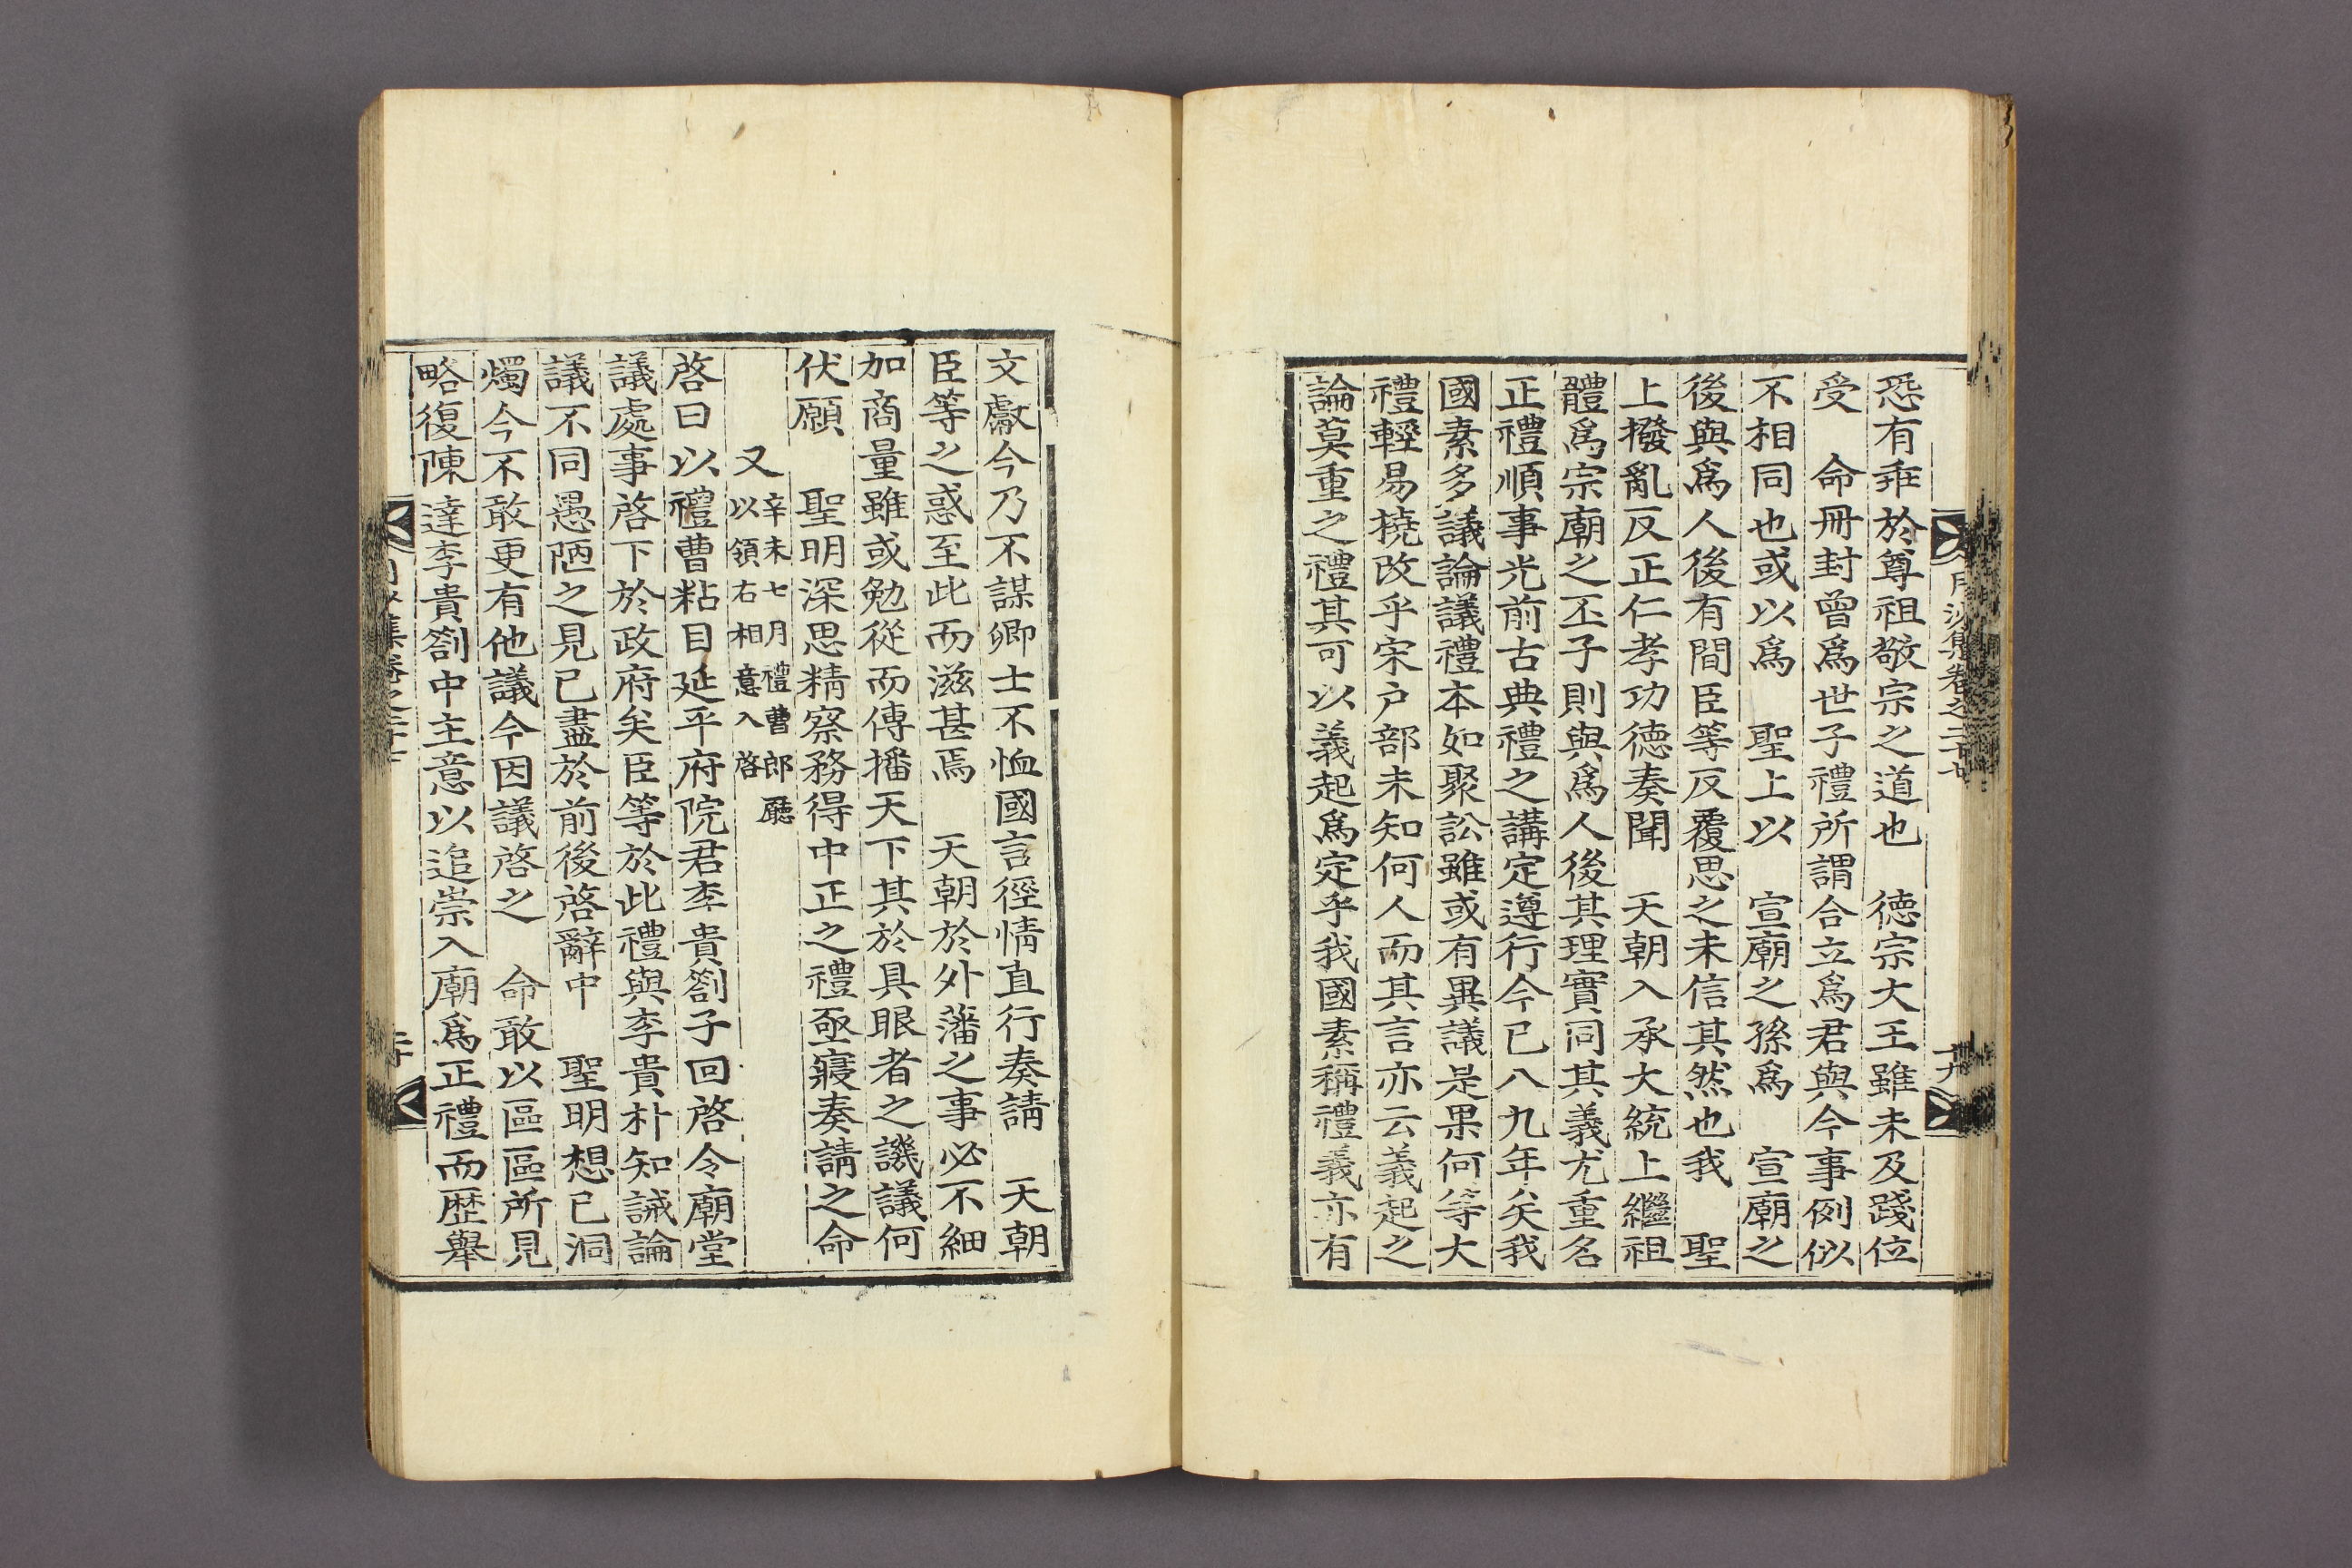 恐有乖於尊祖敬宗之道也 德宗大王雖未及踐位
受 命冊封曾爲世子禮所謂合立爲君與今事例似
不相同也或以爲 聖上以 宣廟之孫爲 宣廟之
後與爲人後有間臣等反覆思之未信其然也我 聖
上撥亂反正仁孝功德奏聞 天朝入承大統上繼祖
體爲宗廟之丕子則與爲人後其理實同其義尤重名
正禮順事光前古典禮之講定遵行今已八九年矣我
國素多議論議禮本如聚訟雖或有異議是果何等大
禮輕易撓改乎宋戶部未知何人而其言亦云義起之
論莫重之禮其可以義起爲定乎我國素稱禮義亦有
文獻今乃不謀卿士不恤國言徑情直行奏請 天朝
臣等之惑至此而滋甚焉 天朝於外藩之事必不細
加商量雖或勉從而傳播天下其於具眼者之譏議何
伏願 聖明深思精察務得中正之禮亟寢奏請之命
又 辛未七月禮曹郎廳
以領右相意入啓
啓曰以禮曹粘目延平府院君李貴劄子回啓令廟堂
議處事啓下於政府矣臣等於此禮與李貴朴知誡論
議不同愚陋之見已盡於前後啓辭中 聖明想已洞
燭今不敢更有他議今因議啓之 命敢以區區所見
略復陳達李貴劄中主意以追崇入廟爲正禮而歷舉